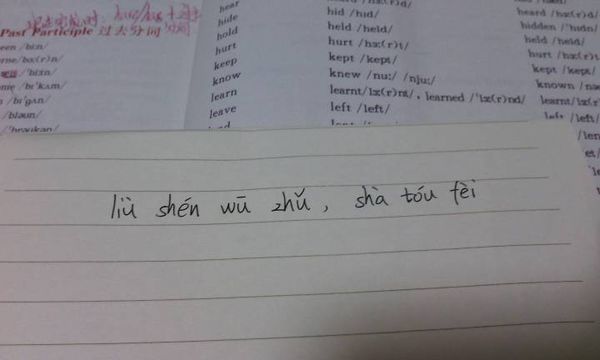 现在完成时: have/has + 过去分词
Past Participle 过去分词
been /biːn/
/bɪˈkʌm/
/bɪˈɡʌn/
/bləun/
hear
hide
hold
hurt
keep
know
learn
leave
hid /hɪd/
held /held/
hurt /hɜː(r)t/
kept /kept/
knew /nuː/ /njuː/
learnt/lɜː(r)nt/, learned /ˈlɜː(r)nd/
left /left/
heard /hɜː(r)d/
hidden /ˈhɪdn/
held /held/
hurt /hɜː(r)t/
kept /kept/
known
learnt
left /left/
liù shén wū zhǔ, shà tóu fèi